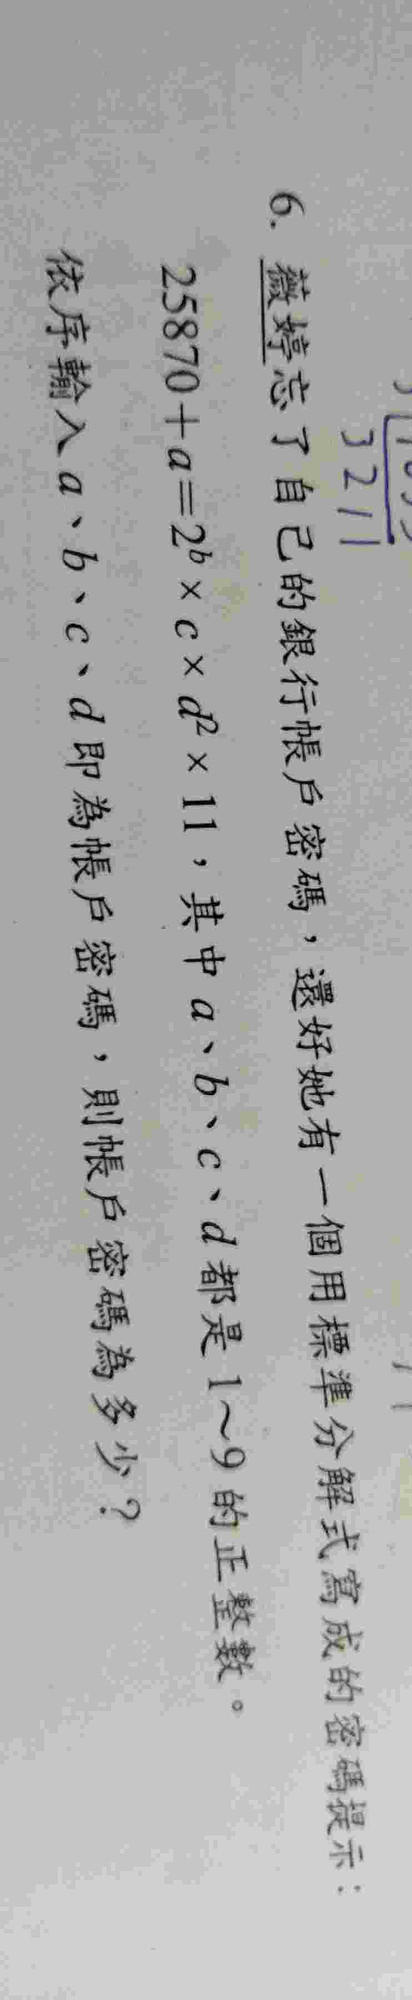 6. 薇婷忘了自己的銀行帳戶密碼，還好她有一個用標準分解式寫成的密碼提示：
25870+a=2ᵇ×c×d²×11，其中a、b、c、d都是1～9的正整數。
依序輸入a、b、c、d即為帳戶密碼，則帳戶密碼為多少？
3211